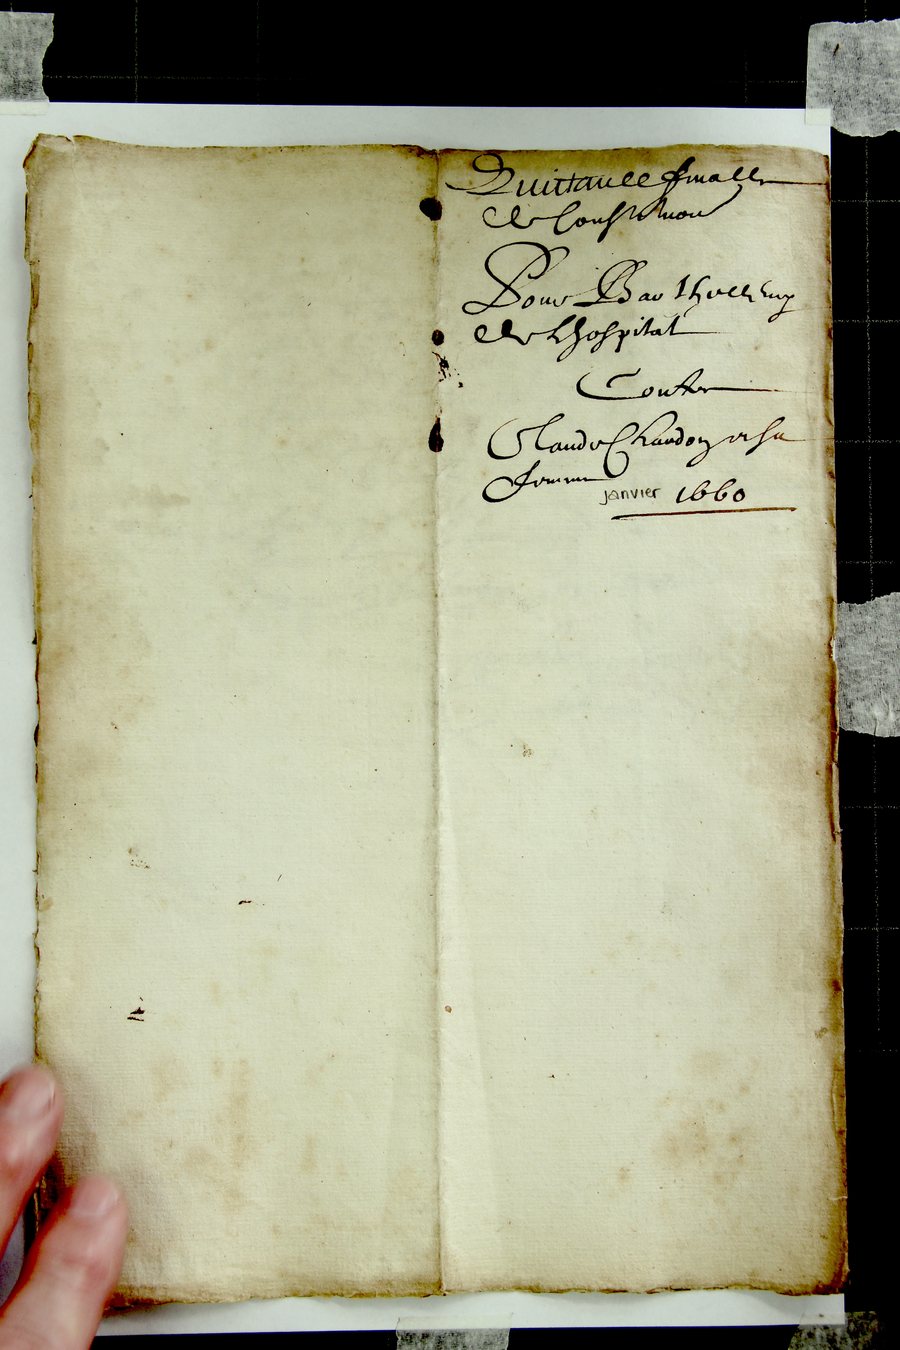 Quittance finalle
de constitution
Pour Barthellemy
de Lhospital
Contre
Claude Chardon et sa
femme
janvier 1660